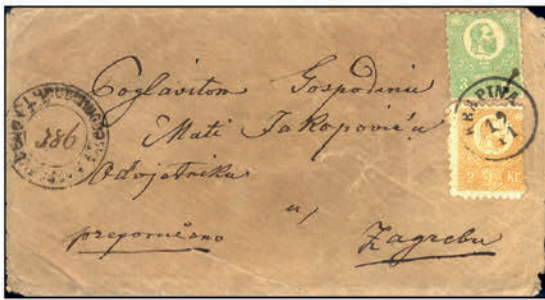 Poglavitom Gospodinu
Mati Jakopoviću
Odvjetniku
u,
preporučeno
Zagrebu
KRAPINA
19
11
2 Kr.